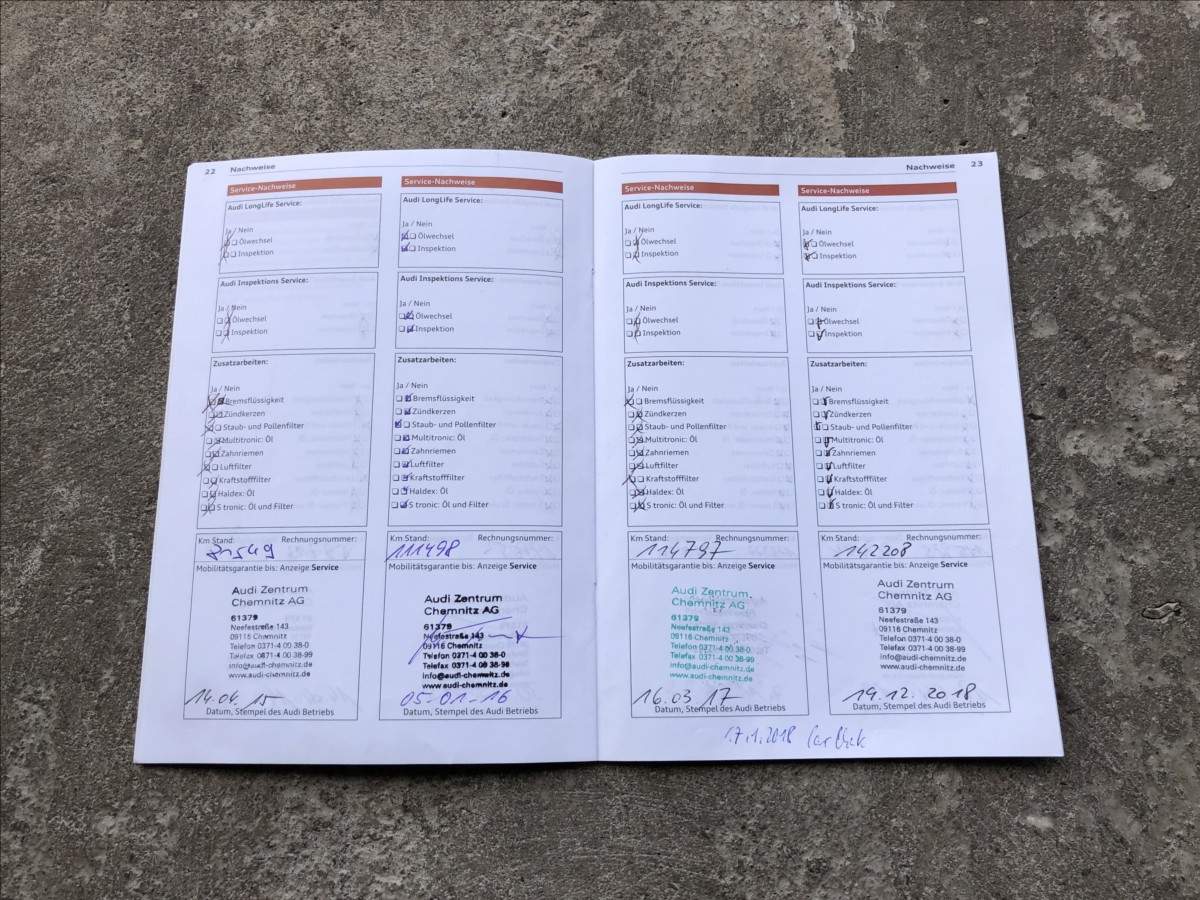 22 Nachweise
Service-Nachweise
Audi LongLife Service:
Ja / Nein
Ölwechsel
Inspektion
Audi Inspektions Service:
Ja / Nein
Ölwechsel
Inspektion
Zusatzarbeiten:
Ja / Nein
Bremsflüssigkeit
Zündkerzen
Staub- und Pollenfilter
Multitronic: Öl
Zahnriemen
Luftfilter
Kraftstofffilter
Haldex: Öl
S tronic: Öl und Filter
Km Stand: Rechnungsnummer:
Mobilitätsgarantie bis: Anzeige Service
Audi Zentrum
Chemnitz AG
61379
Neefestraße 143
09116 Chemnitz
Telefon 0371-4 00 38-0
Telefax 0371-4 00 38-99
info@audi-chemnitz.de
www.audi-chemnitz.de
14.04.15
Datum, Stempel des Audi Betriebs
Service-Nachweise
Audi LongLife Service:
Ja / Nein
Ölwechsel
Inspektion
Audi Inspektions Service:
Ja / Nein
Ölwechsel
Inspektion
Zusatzarbeiten:
Ja / Nein
Bremsflüssigkeit
Zündkerzen
Staub- und Pollenfilter
Multitronic: Öl
Zahnriemen
Luftfilter
Kraftstofffilter
Haldex: Öl
S tronic: Öl und Filter
Km Stand: Rechnungsnummer:
111498
Mobilitätsgarantie bis: Anzeige Service
Audi Zentrum
Chemnitz AG
61379
Neefestraße 143
09116 Chemnitz
Telefon 0371-4 00 38-0
Telefax 0371-4 00 38-99
info@audi-chemnitz.de
www.audi-chemnitz.de
05-01-16
Datum, Stempel des Audi Betriebs
Nachweise 23
Service-Nachweise
Audi LongLife Service:
Ja / Nein
Ölwechsel
Inspektion
Audi Inspektions Service:
Ja / Nein
Ölwechsel
Inspektion
Zusatzarbeiten:
Ja / Nein
Bremsflüssigkeit
Zündkerzen
Staub- und Pollenfilter
Multitronic: Öl
Zahnriemen
Luftfilter
Kraftstofffilter
Haldex: Öl
S tronic: Öl und Filter
Km Stand: Rechnungsnummer:
114797
Mobilitätsgarantie bis: Anzeige Service
Audi Zentrum
Chemnitz AG
61379
Neefestraße 143
09116 Chemnitz
Telefon 0371-4 00 38-0
Telefax 0371-4 00 38-99
info@audi-chemnitz.de
www.audi-chemnitz.de
16.03.17
Datum, Stempel des Audi Betriebs
Service-Nachweise
Audi LongLife Service:
Ja / Nein
Ölwechsel
Inspektion
Audi Inspektions Service:
Ja / Nein
Ölwechsel
Inspektion
Zusatzarbeiten:
Ja / Nein
Bremsflüssigkeit
Zündkerzen
Staub- und Pollenfilter
Multitronic: Öl
Zahnriemen
Luftfilter
Kraftstofffilter
Haldex: Öl
S tronic: Öl und Filter
Km Stand: Rechnungsnummer:
142208
Mobilitätsgarantie bis: Anzeige Service
Audi Zentrum
Chemnitz AG
61379
Neefestraße 143
09116 Chemnitz
Telefon 0371-4 00 38-0
Telefax 0371-4 00 38-99
info@audi-chemnitz.de
www.audi-chemnitz.de
19.12.2018
Datum, Stempel des Audi Betriebs
17.1.2018